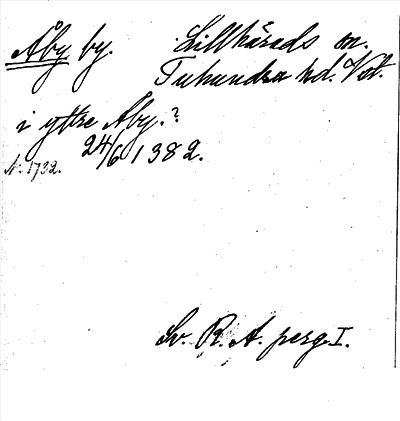 Åby by. Lillhärads sn.
Tuhundra hd. Vstm.
i yttre Åby.?
24/6 1382.
N. 1732.
Sv. R. A. perg. I.